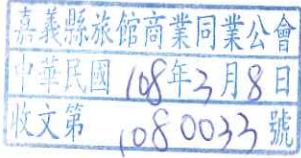 嘉義縣旅館商業同業公會
中華民國108年3月8日
收文第1080033號